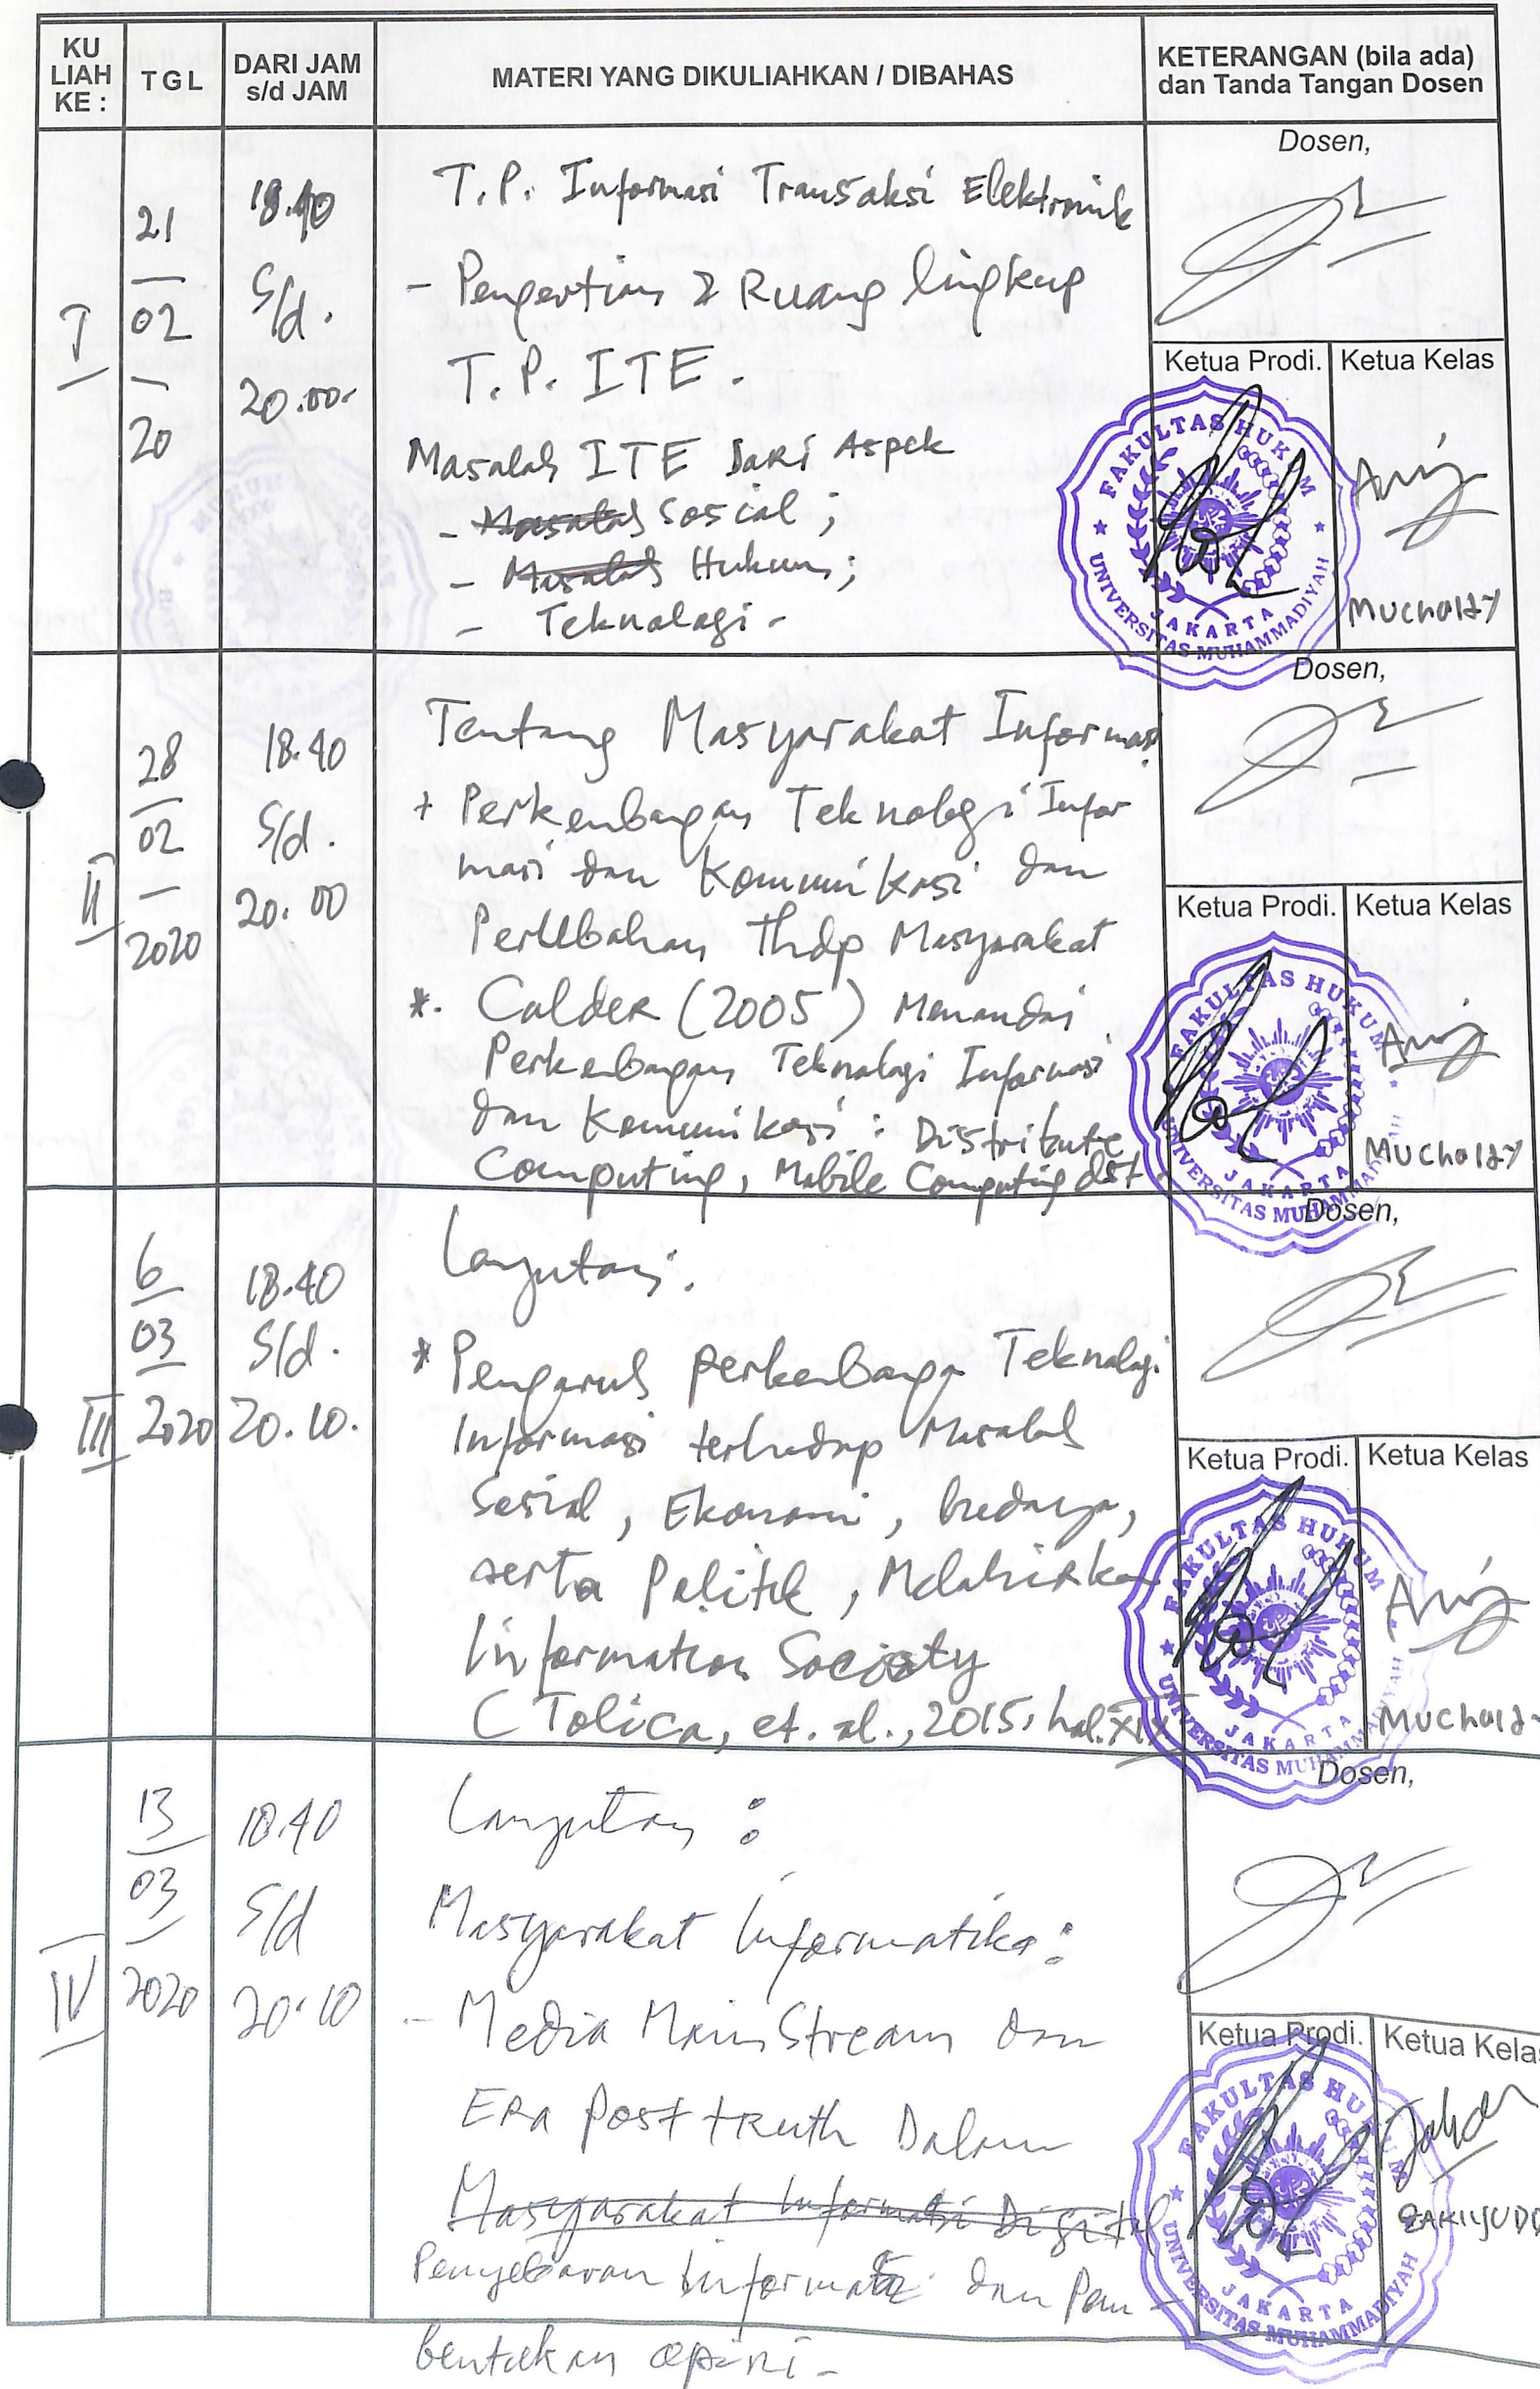 KU LIAH KE :
TGL
DARI JAM s/d JAM
MATERI YANG DIKULIAHKAN / DIBAHAS
KETERANGAN (bila ada) dan Tanda Tangan Dosen
I
21
02
20
18.40
s/d.
20.00.
T.P. Informasi Transaksi Elektronik
- Pengertian & Ruang lingkup
T.P. ITE.
Masalah ITE Dari Aspek
- Masalah Sosial ;
- Masalah Hukum ;
- Teknologi -
Dosen,
Ketua Prodi.
Ketua Kelas
FAKULTAS HUKUM
UNIVERSITAS MUHAMMADIYAH
JAKARTA
Mucholdy
II
28
02
2020
18.40
s/d.
20.00
Tentang Masyarakat Informasi
+ Perkembangan Teknologi Infor
masi dan Komunikasi dan
Perubahan thdp Masyarakat
*. Calder (2005) Menandai
Perkembangan Teknologi Informasi
dan Komunikasi : Distribute
Computing, Mobile Computing dst
Dosen,
Ketua Prodi.
Ketua Kelas
FAKULTAS HUKUM
UNIVERSITAS MUHAMMADIYAH
JAKARTA
Mucholdy
III
6
03
2020
18.40
s/d.
20.10.
Lanjutan.
* Pengaruh perkembangan Teknologi
Informasi terhadap Masalah
Sosial, Ekonomi, budaya,
serta Politik, Melahirkan
Information Society
( Tolica, et. al., 2015, hal. XIX
Dosen,
Ketua Prodi.
Ketua Kelas
FAKULTAS HUKUM
UNIVERSITAS MUHAMMADIYAH
JAKARTA
Mucholdy
IV
13
03
2020
18.40
s/d
20.10
Lanjutan :
Masyarakat Informatika :
- Media MainStream dan
ERa Post tRuth Dalam
Masyarakat Informasi Digital
Penyebaran Informasi dan Pem -
bentukan opini -
Dosen,
Ketua Prodi.
Ketua Kelas
FAKULTAS HUKUM
UNIVERSITAS MUHAMMADIYAH
JAKARTA
ZAKIYUDD